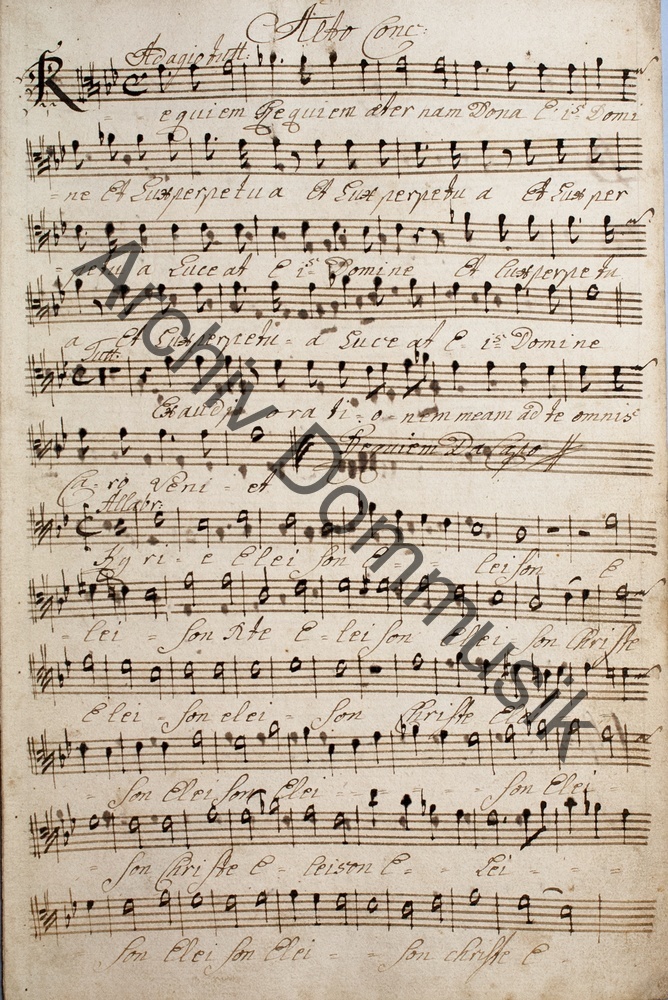 Alto Conc:
Adagio tutt:
Requiem Requiem æternam Dona E is Domi
= ne Et Lux perpetua Et Lux perpetua Et Lux per
= petu a Luceat E is = Domine Et Lux perpetu
a Et Lux perpetu = a Luceat E is Domine
Tutt:
Exaudi ora ti = o = nem meam ad te omnis
Requiem Da Capo
Ca = ro veni = et
Allabr:
Ky ri = e Elei son E = = leison E
= lei = son Elei = son Christe
Elei = son elei = son Christe Elei
= son Elei son Elei = = = = son Elei
= = son Christe E = leison E = = Lei = = =
son Elei son Elei = = son christe E =
Archiv Dommusik